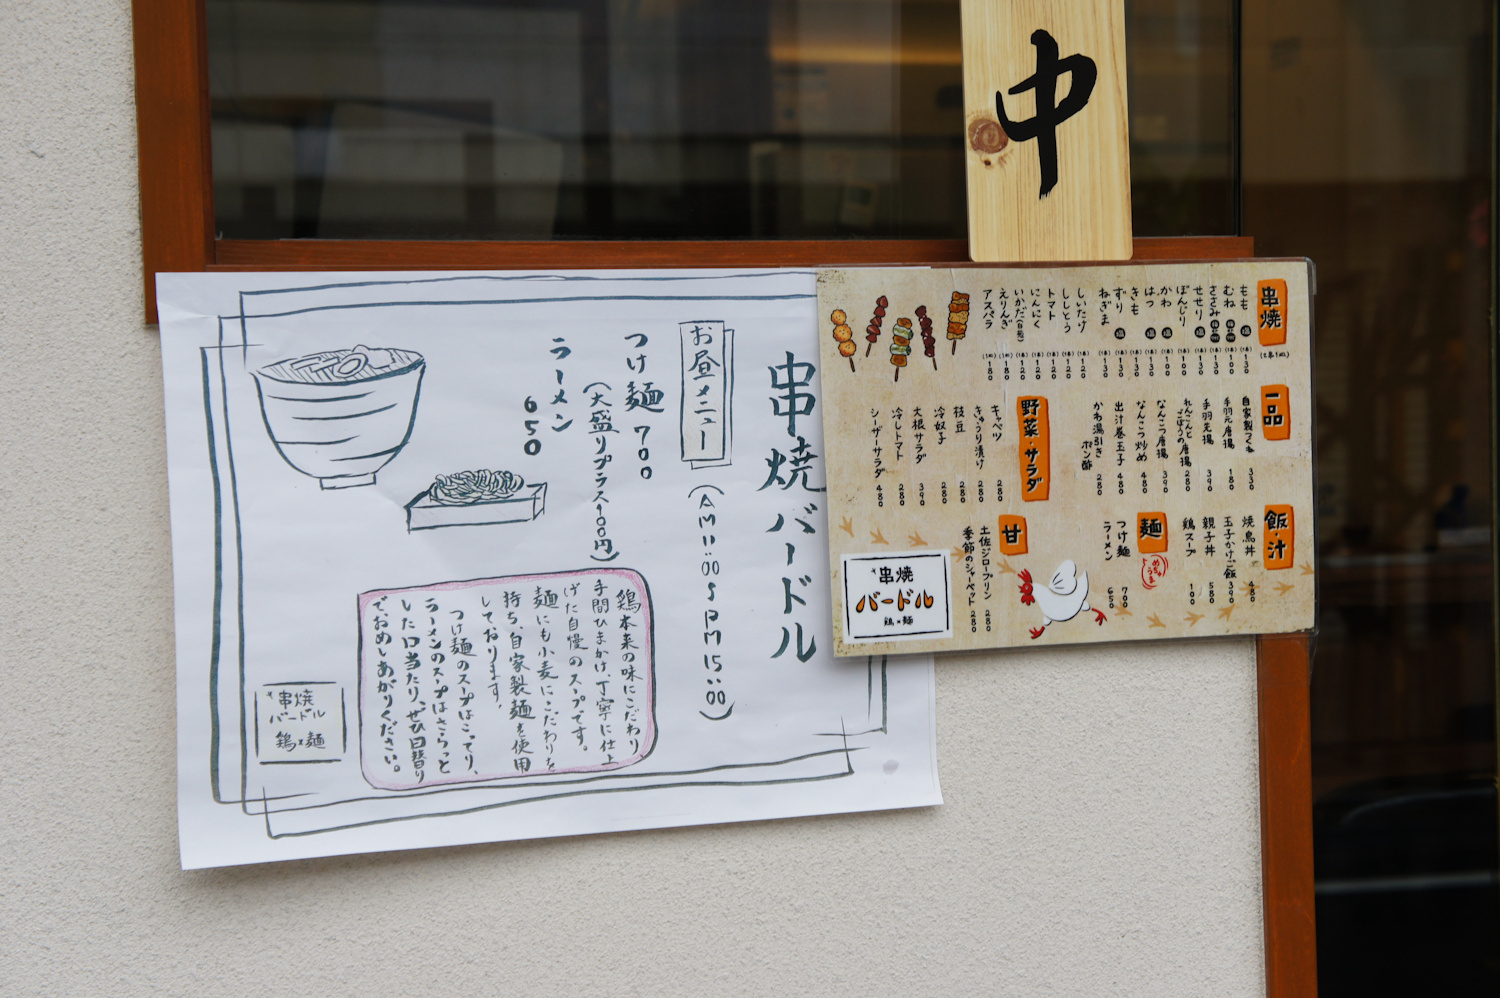 中
串焼バードル
お昼メニュー
(AM11:00〜PM15:00)
つけ麺 700
(大盛りプラス100円)
ラーメン
650
鶏本来の味にこだわり
手間ひまかけ、丁寧に仕上
げた自慢のスープです。
麺にも小麦にこだわりを
持ち、自家製麺を使用
しております。
つけ麺のスープはこってり、
ラーメンのスープはさらっと
した口当たり、ぜひ日替り
で、おめしあがりください。
串焼
バードル
鶏×麺
串焼
もも 塩 (1本) 130
むね (1本) 100
ささみ (1本) 130
せせり 塩 (1本) 130
ぼんじり (1本) 130
かわ 塩 (1本) 100
はつ 塩 (1本) 130
きも (1本) 130
ずり 塩 (1本) 130
ねぎま (1本) 130
しいたけ (1本) 120
ししとう (1本) 120
トマト (1本) 120
にんにく (1本) 120
いかだ(白葱) (1本) 120
えりんぎ 180
アスパラ 180
一品
自家製つくね 330
手羽元唐揚 180
手羽先揚 390
れんこんとごぼうの唐揚 280
なんこつ唐揚 390
なんこつ炒め 480
出汁巻玉子 480
かわ湯引きポン酢 280
野菜・サラダ
キャベツ 280
きゅうり漬け 280
枝豆 280
冷奴子 280
大根サラダ 390
冷しトマト 280
シーザーサラダ 480
飯・汁
焼鳥丼 480
玉子かけご飯 390
親子丼 580
鶏スープ 100
麺
めちゃうま
つけ麺 700
ラーメン 650
甘
土佐ジロープリン 280
季節のシャーベット 280
串焼
バードル
鶏×麺